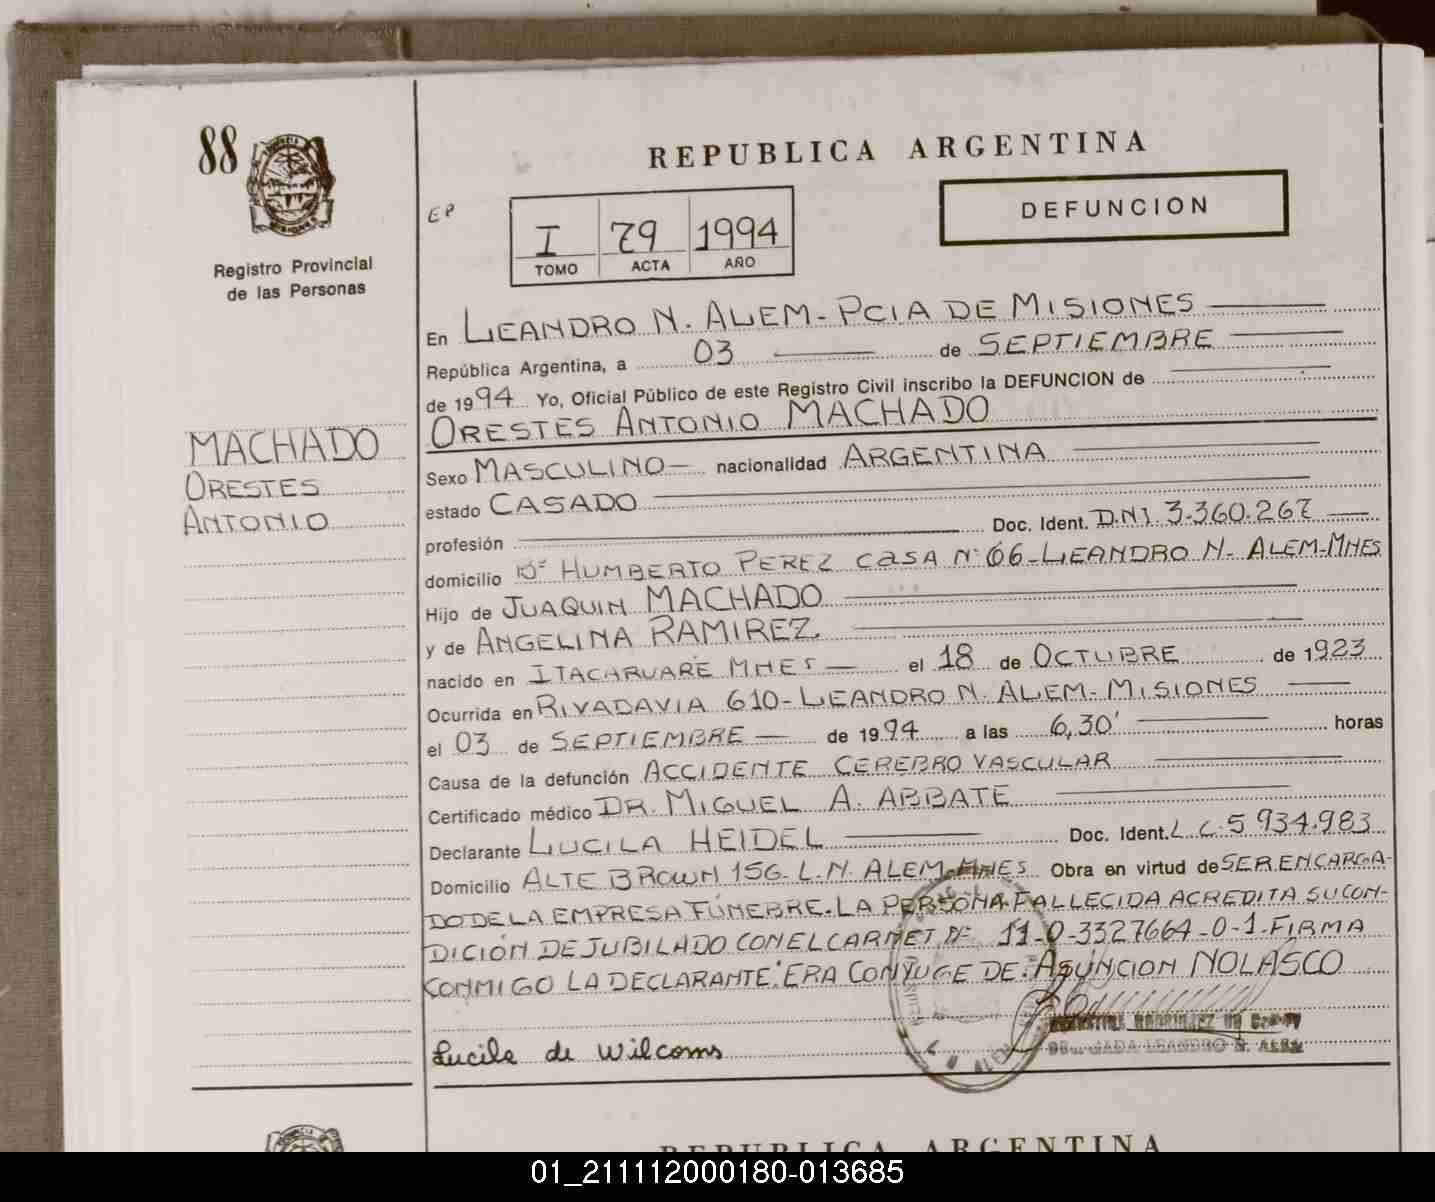 88
Registro Provincial
de las Personas
MACHADO
ORESTES
ANTONIO
REPUBLICA ARGENTINA
EP
I 79 1994
TOMO ACTA AÑO
DEFUNCION
En LEANDRO N. ALEM - PCIA DE MISIONES
República Argentina, a 03 de SEPTIEMBRE
de 1994 Yo, Oficial Público de este Registro Civil inscribo la DEFUNCION de
ORESTES ANTONIO MACHADO
Sexo MASCULINO nacionalidad ARGENTINA
estado CASADO
profesión Doc. Ident. D.N.I. 3.360.267
domicilio Bº HUMBERTO PEREZ CASA Nº 66 - LEANDRO N. ALEM - MNES
Hijo de JUAQUIN MACHADO
y de ANGELINA RAMIREZ.
nacido en ITACARUARE MNES el 18 de OCTUBRE de 1923
Ocurrida en RIVADAVIA 610 - LEANDRO N. ALEM - MISIONES
el 03 de SEPTIEMBRE de 1994 a las 6,30' horas
Causa de la defunción ACCIDENTE CEREBRO VASCULAR
Certificado médico DR. MIGUEL A. ABBATE
Declarante LUCILA HEIDEL Doc. Ident. L.C. 5 934.983
Domicilio ALTE BROWN 156 - L.N. ALEM - MNES Obra en virtud de SER ENCARGA-
DO DE LA EMPRESA FÚNEBRE. LA PERSONA FALLECIDA ACREDITA SU CON-
DICIÓN DE JUBILADO CON EL CARNET Nº 11-0-3327664-0-1. FIRMA
CONMIGO LA DECLARANTE. ERA CONYUGE DE: ASUNCION NOLASCO
Lucila de Wilcoms
LEANDRO N. ALEM
REPUBLICA ARGENTINA
01_211112000180-013685